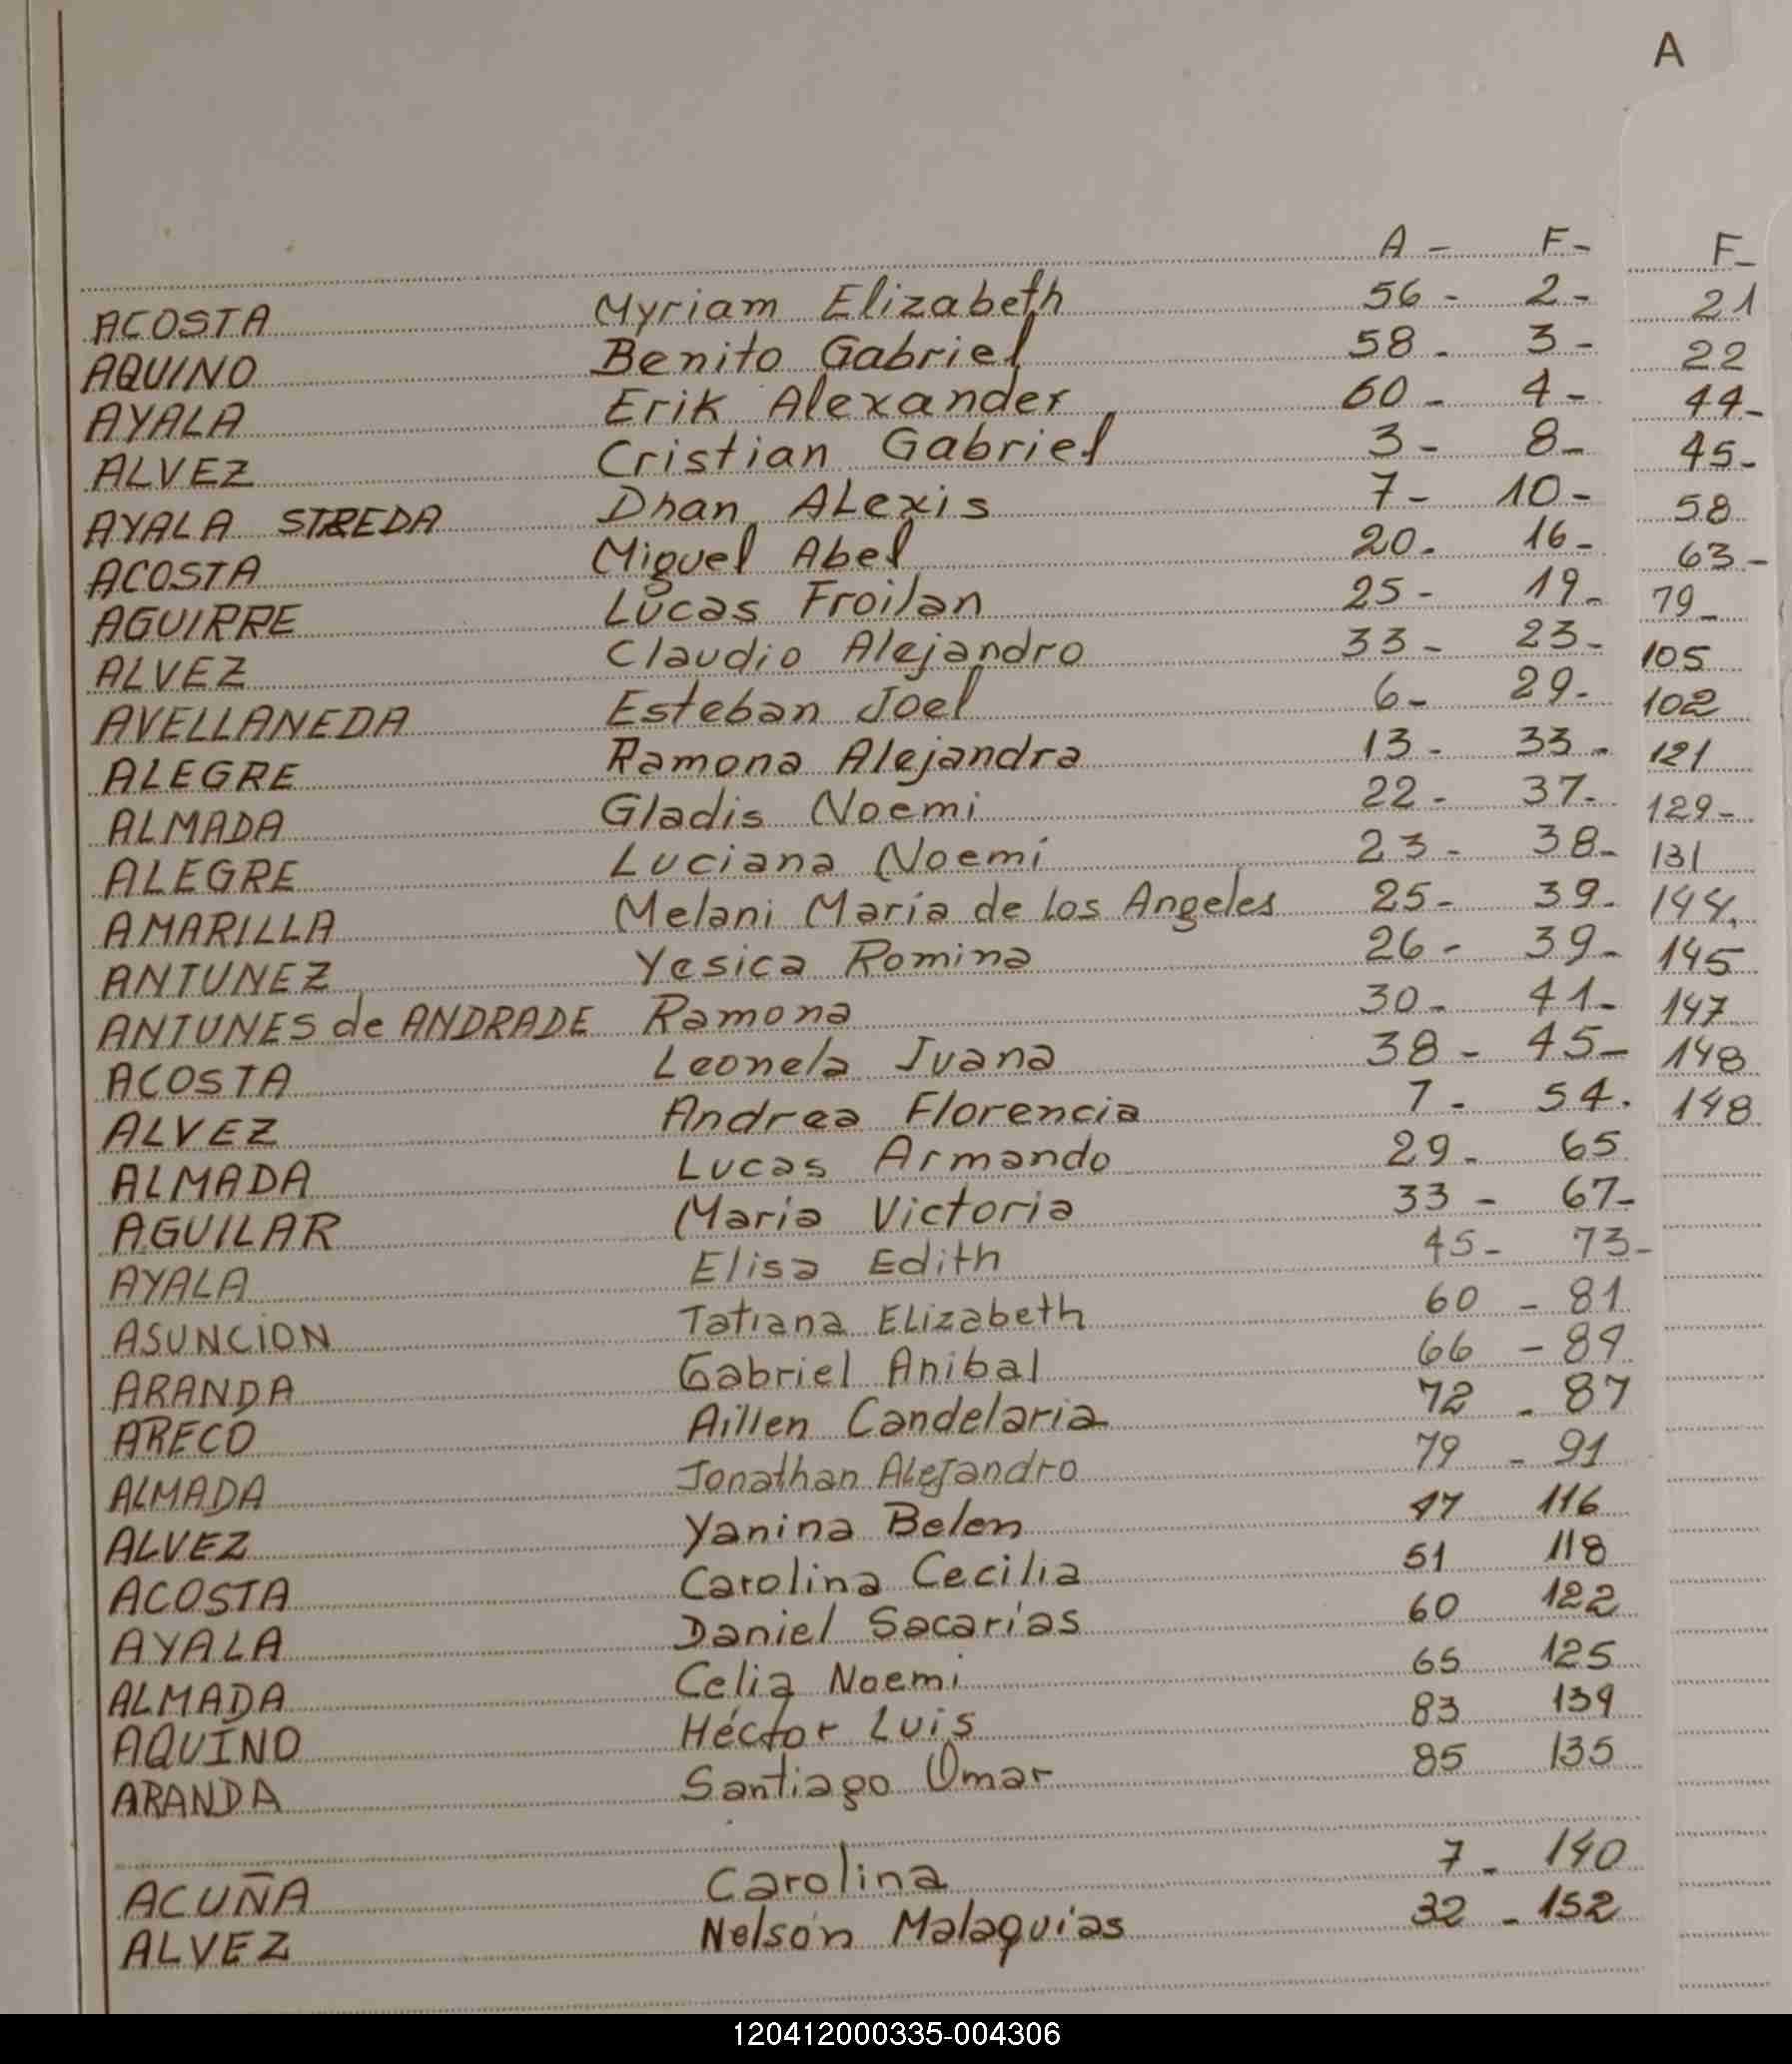 A
A - F - F-
ACOSTA Myriam Elizabeth 56 - 2 - 21
AQUINO Benito Gabriel 58 - 3 - 22
AYALA Erik Alexander 60 - 4 - 44-
ALVEZ Cristian Gabriel 3 - 8 - 45-
AYALA STREDA Dhan ALexis 7 - 10 - 58
ACOSTA Miguel Abel 20 - 16 - 63 -
AGUIRRE Lucas Froilan 25 - 19 - 79 -
ALVEZ Claudio Alejandro 33 - 23 - 105
AVELLANEDA Esteban Joel 6 - 29 - 102
ALEGRE Ramona Alejandra 13 - 33 - 121
ALMADA Gladis Noemi 22 - 37 - 129 -
ALEGRE Luciana Noemi 23 - 38 - 131
AMARILLA Melani Maria de los Angeles 25 - 39 - 144.
ANTUNEZ Yesica Romina 26 - 39 - 145
ANTUNES de ANDRADE Ramona 30 - 41 - 147
ACOSTA Leonela Juana 38 - 45 - 148
ALVEZ Andrea Florencia 7 - 54 . 148
ALMADA Lucas Armando 29 - 65
AGUILAR Maria Victoria 33 - 67 -
AYALA Elisa Edith 45 - 73 -
ASUNCION Tatiana ELizabeth 60 - 81
ARANDA Gabriel Anibal 66 - 84
ARECO Aillen Candelaria 72 - 87
ALMADA Jonathan ALeJandro 79 - 91
ALVEZ Yanina Belen 47 116
ACOSTA Carolina Cecilia 51 118
AYALA Daniel Sacarías 60 122
ALMADA Celia Noemi 65 125
AQUINO Héctor Luis 83 134
ARANDA Santiago Omar 85 135
ACUÑA Carolina 7 - 140
ALVEZ Nelson Malaquias 32 - 152
120412000335-004306